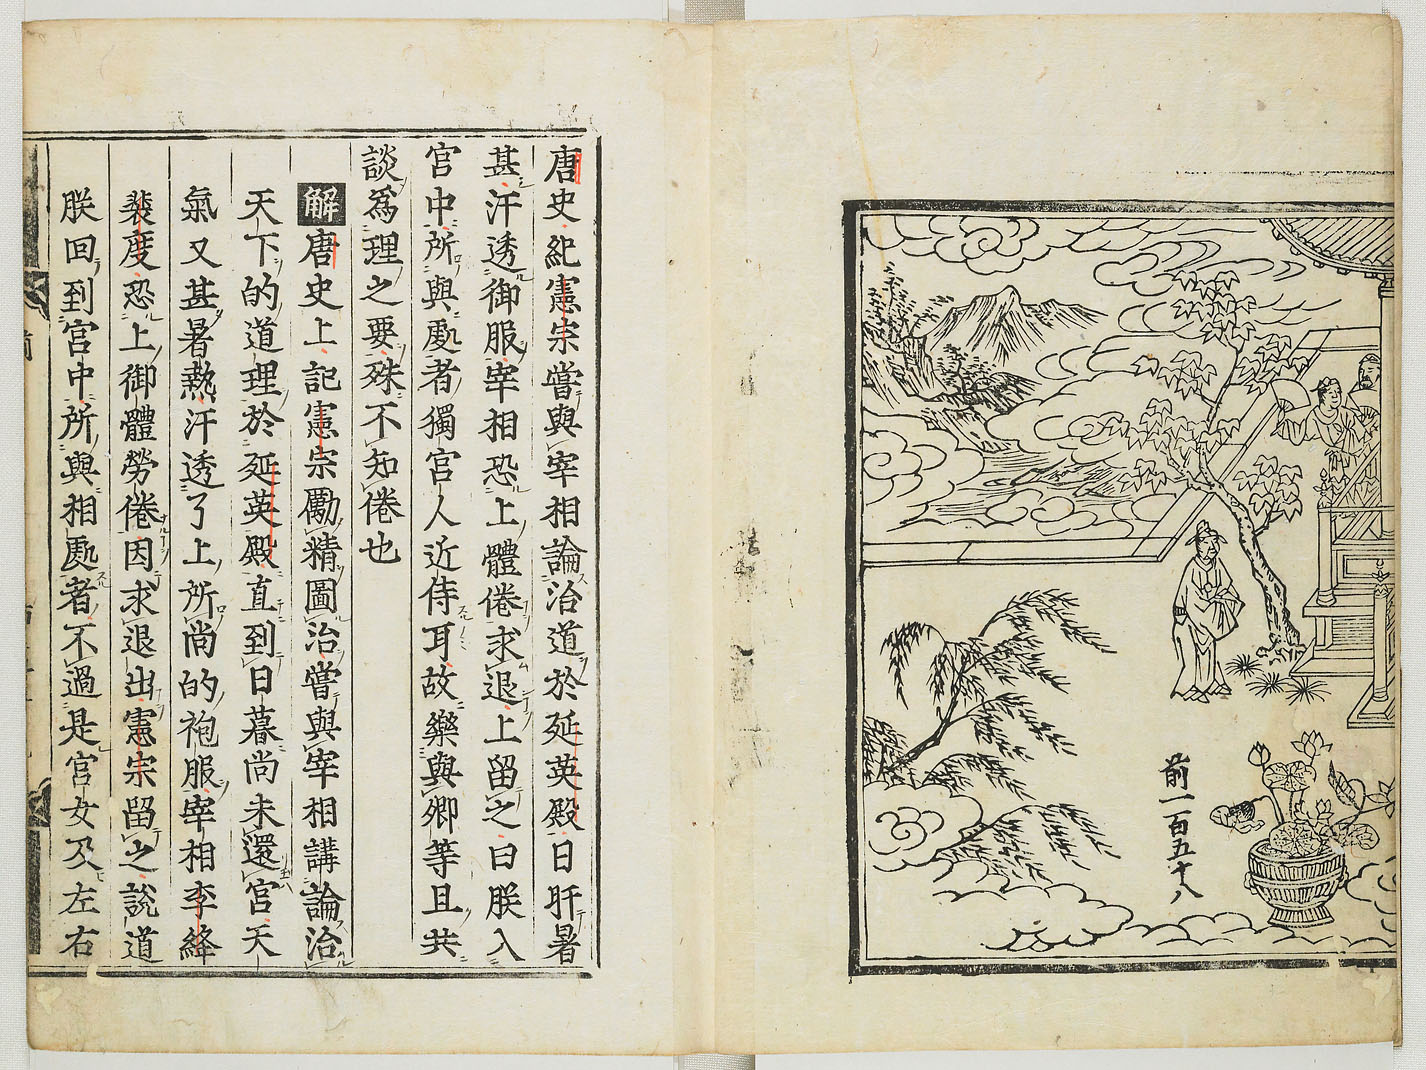 前一百五十八
唐史紀憲宗嘗與宰相論治道於延英殿日旰暑
甚汗透御服宰相恐上體倦求退上留之曰朕入
宮中所與處者獨宮人近侍耳故樂與卿等且共
談爲理之要殊不知倦也
解唐史上記憲宗勵精圖治嘗與宰相講論治
天下的道理於延英殿直到日暮尚未還宮天
氣又甚暑熱汗透了上所尚的袍服宰相李絳
裴度恐上御體勞倦因求退出憲宗留之說道
朕回到宮中所與相處者不過是宮女及左右